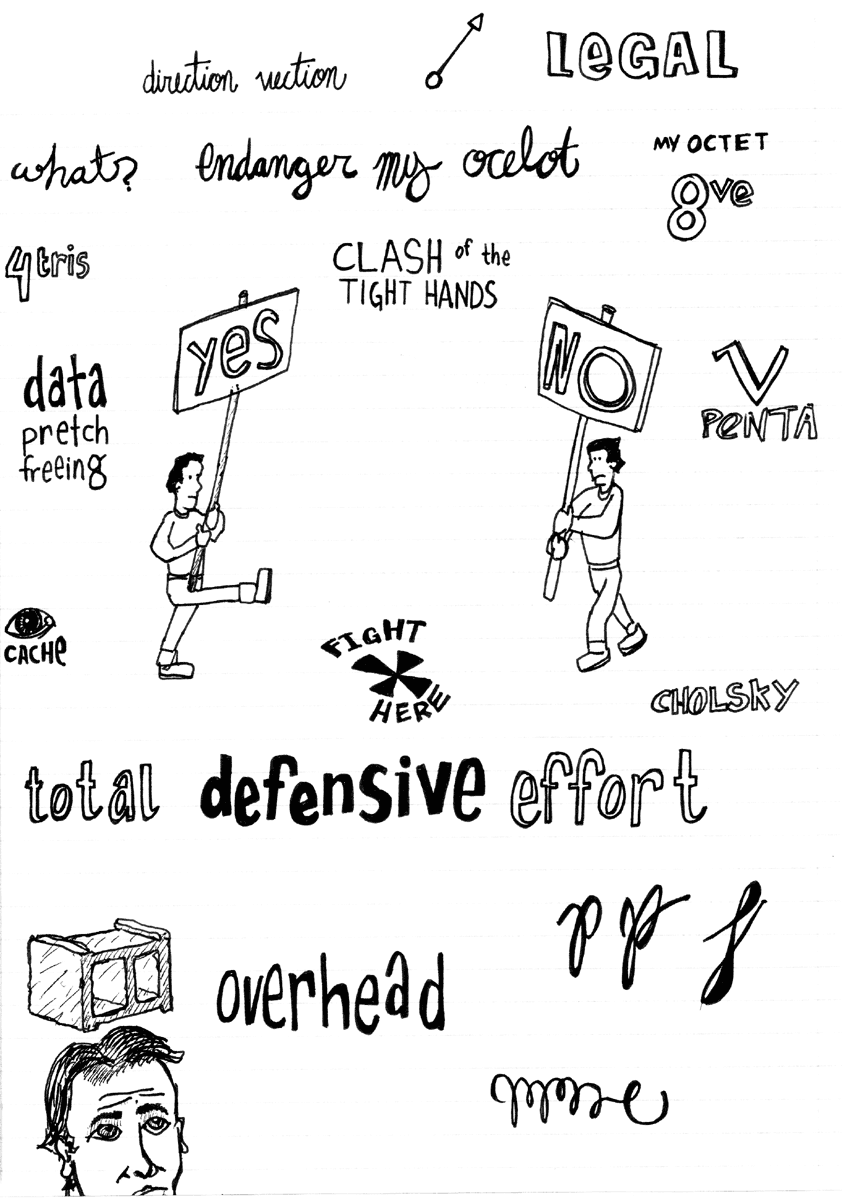 direction vection
LEGAL
what?
endanger my ocelot
MY OCTET
8ve
4tris
CLASH of the
TIGHT HANDS
YES
NO
data
pretch
freeing
V
PENTA
CACHE
FIGHT
HERE
CHOLSKY
total defensive effort
p p f
overhead